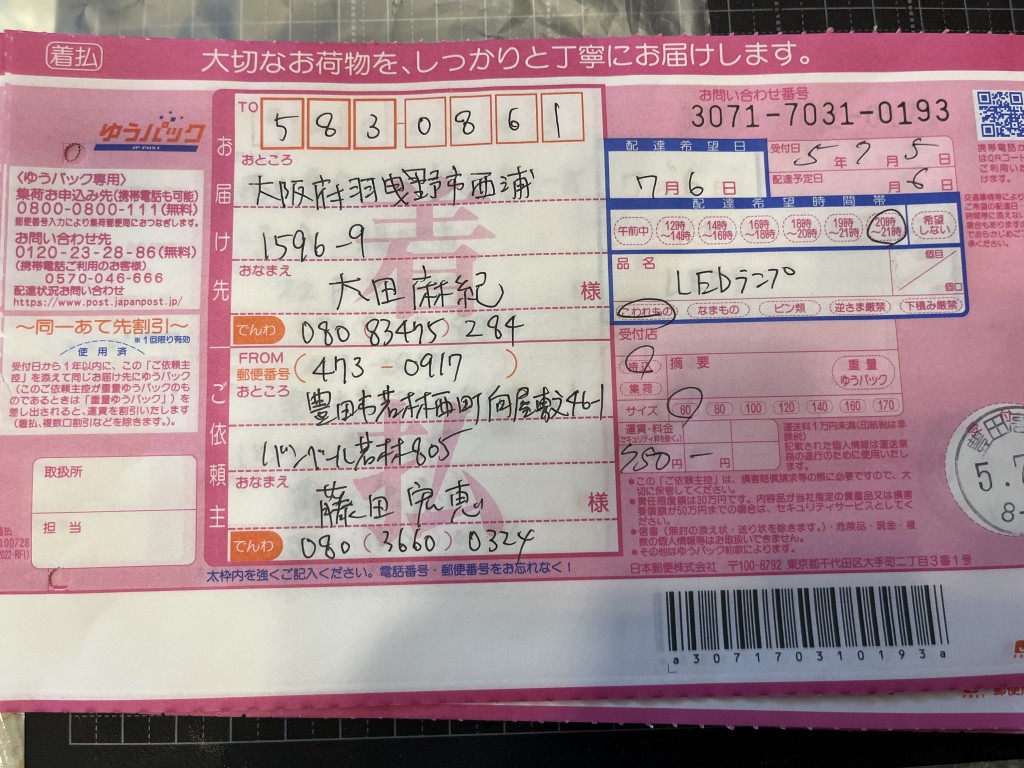 着払
大切なお荷物を、しっかりと丁寧にお届けします。
ゆうパック
JP POST
〈ゆうパック専用〉
集荷お申込み先(携帯電話も可能)
0800-0800-111(無料)
郵便番号入力により集荷郵便局におつなぎします。
お問い合わせ先
0120-23-28-86(無料)
(携帯電話ご利用のお客様)
0570-046-666
配達状況お問い合わせ
https://www.post.japanpost.jp/
〜同一あて先割引〜
※1回限り有効
使用済
受付日から1年以内に、この「ご依頼主
控」を添えて同じお届け先にゆうパック
(このご依頼主控が重量ゆうパックのも
のであるときは「重量ゆうパック」)
を差し出されると、運賃を割引いたします
(着払、複数口割引などを除きます。)。
取扱所
担当
お届け先
TO
583-0861
おところ
大阪府羽曳野市西浦
1596-9
おなまえ
大田麻紀 様
でんわ 080 83475) 284
ご依頼主
FROM
郵便番号 (473-0917)
おところ
豊田市若林西町向屋敷46-1
バンベール若林805
おなまえ
藤田宏恵 様
でんわ 080(3660)0324
太枠内を強くご記入ください。電話番号・郵便番号をお忘れなく!
着
払
お問い合わせ番号
3071-7031-0193
配達希望日
7月6日
受付日 5年7月5日
配達予定日 月6日
配達希望時間帯
午前中 12時〜14時 14時〜16時 16時〜18時 18時〜20時 19時〜21時 20時〜21時 希望しない
品名
LEDランプ
個目
個口
こわれもの なまもの ビン類 逆さま厳禁 下積み厳禁
受付店
持込
集荷
摘要
重量
ゆうパック
サイズ 60 80 100 120 140 160 170
運賃・料金
(セキュリティ料を除く。)
円
円
運送料1万円未満(印紙税は非
課税)
記載された個人情報は運送業
務の遂行のために使用いたし
ます。
●この「ご依頼主控」は、損害賠償請求等の際に必要ですので、大
切に保管してください。
●責任限度額は30万円です。内容品が当社指定の貴重品又は損害
要償額が50万円までの場合は、セキュリティサービスとしてく
ださい。
●信書(無封の添え状・送り状を除きます。)・危険品・現金・複
数の個人情報等はお取扱いできません。
●その他はゆうパック約款によります。
日本郵便株式会社 〒100-8792 東京都千代田区大手町二丁目3番1号
5.7
8-
a307170310193a